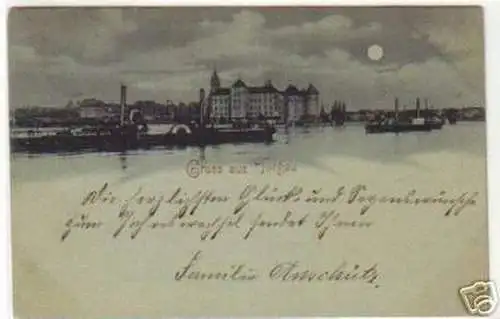 Gruss aus Torgau
Die herzlichsten Glück- und Segenswünsche
zum Jahreswechsel sendet Ihnen
Familie Anschütz